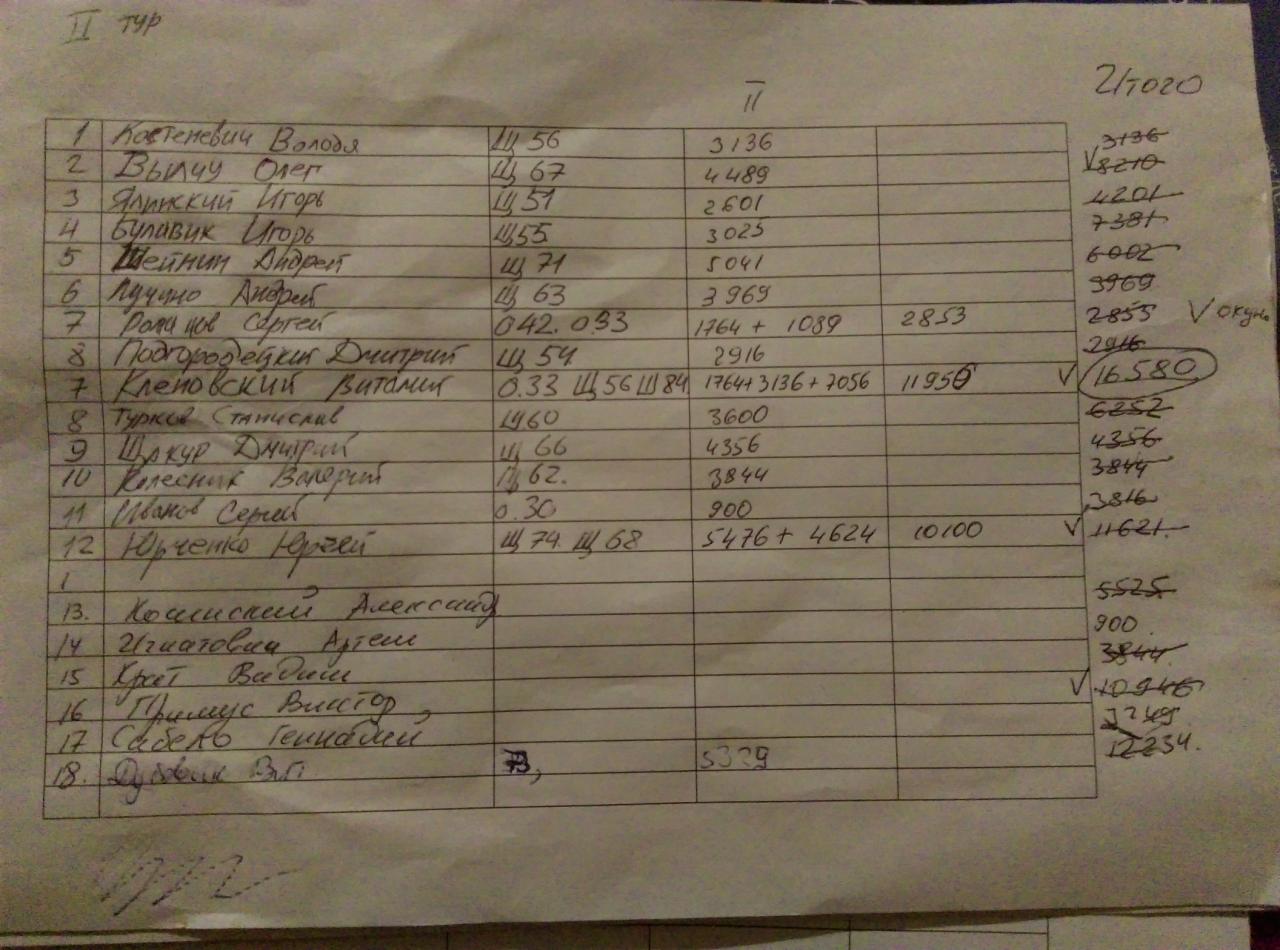 II тур
II Итого
1 Костеневич Володя Щ 56 3136 3136
2 Вылчу Олег Щ 67 4489 V 8210
3 Ялинский Игорь Щ 51 2601 4201
4 Булавик Игорь Щ55 3025 7381
5 Шейнин Андрей Щ 71 5041 6002
6 Лучино Андрей Щ 63 3969 3969
7 Сергей 042. 033 1764 + 1089 2853 2855 V окунь
8 Подгородецкий Дмитрий Щ 54 2916 2916
7 Клеповский Виталий 0.33 Щ 56 Щ 84 1764+3136+7056 11956 V 16580
8 Турков Станислав Щ60 3600 6252
9 Щакур Дмитрий Щ 66 4356 4356
10 Колесник Валерий Щ 62. 3844 3844
11 Иванов Сергей 0.30 900 3816
12 Юрченко Юргей Щ 74. Щ 68 5476 + 4624 10100 V 11621.
1
13. Александр 5525
14 Игнатович Артем 900
15 Крат Вадим 3844.
16 Примус Виктор V 10946
17 Сабело Геннадий
18. Дубовик 73, 5329 12234.